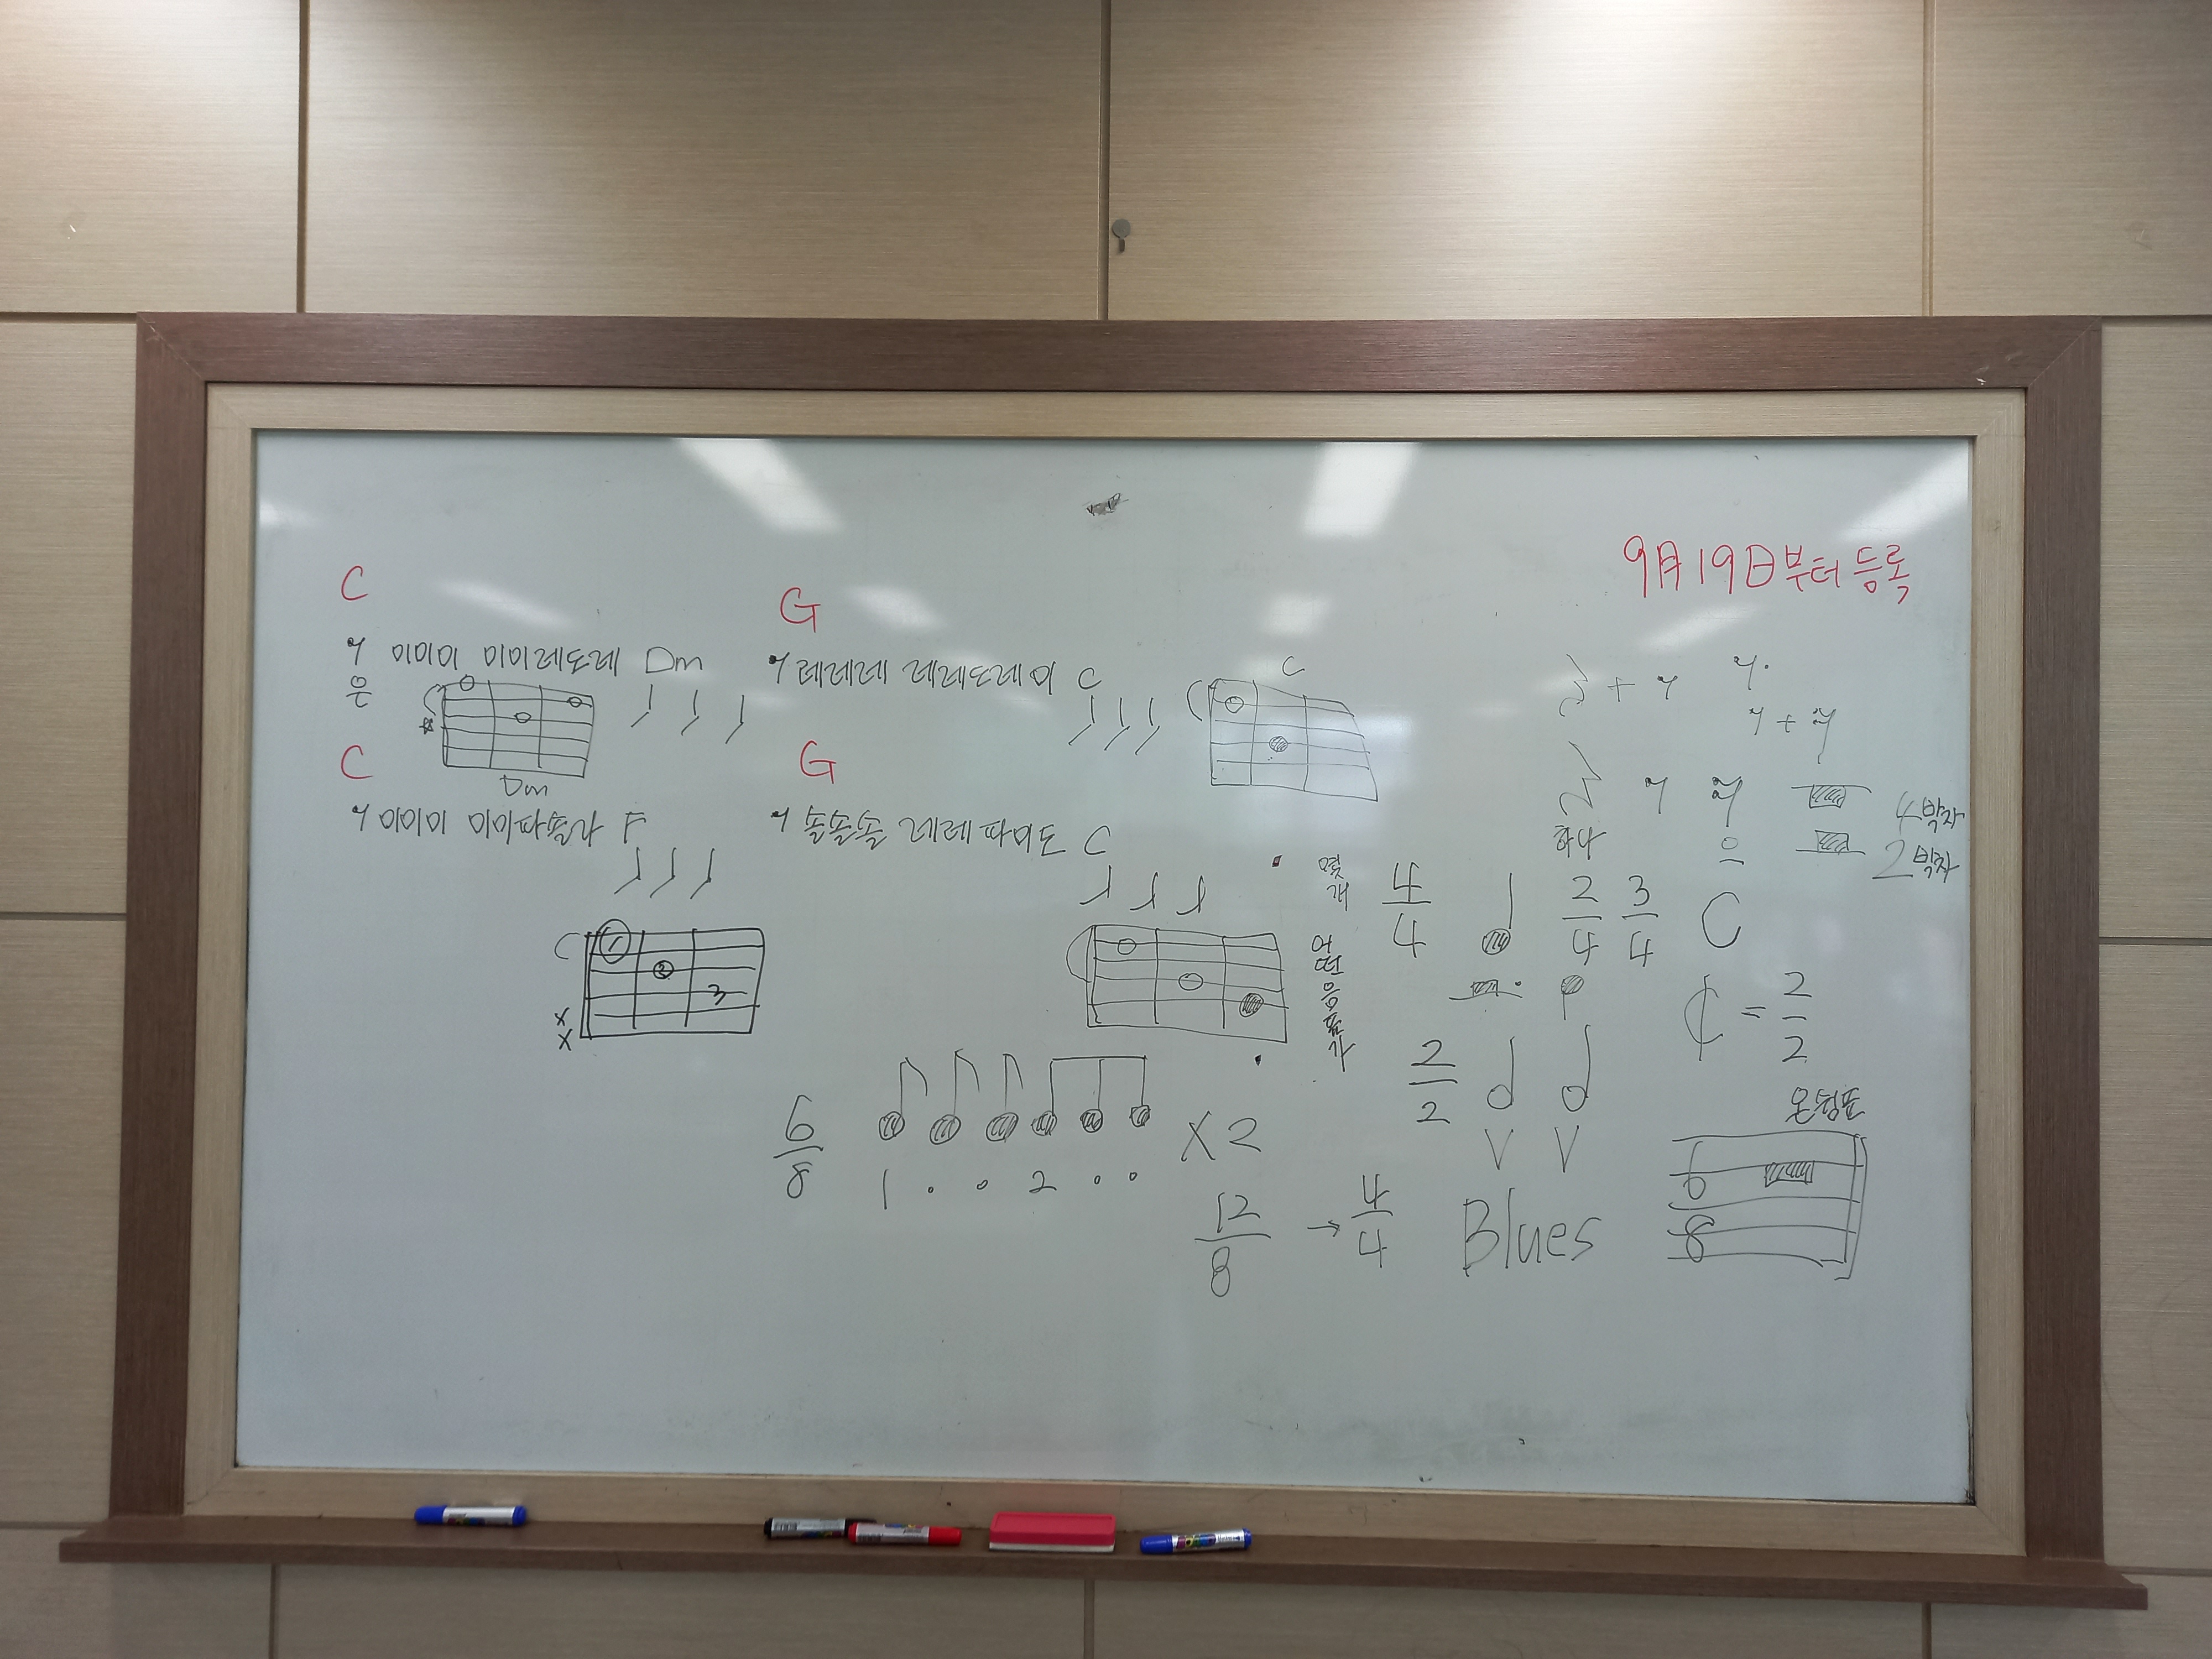 9月 19日부터 등록
C
G
미미미 미미레도레 Dm
은
레레레 레레도레미 C
C
Dm
C
G
미미미 미미파솔라 F
솔솔솔 레레파미도 C
1
2
3
x
x
+
+
하나
으
4박자
2박자
몇 개
어떤 음표가
4/4
2/4
3/4
C
¢ = 2/2
2/2
V V
온쉼표
6/8
6/8
x2
1 . . 2 . .
12/8 → 4/4 Blues